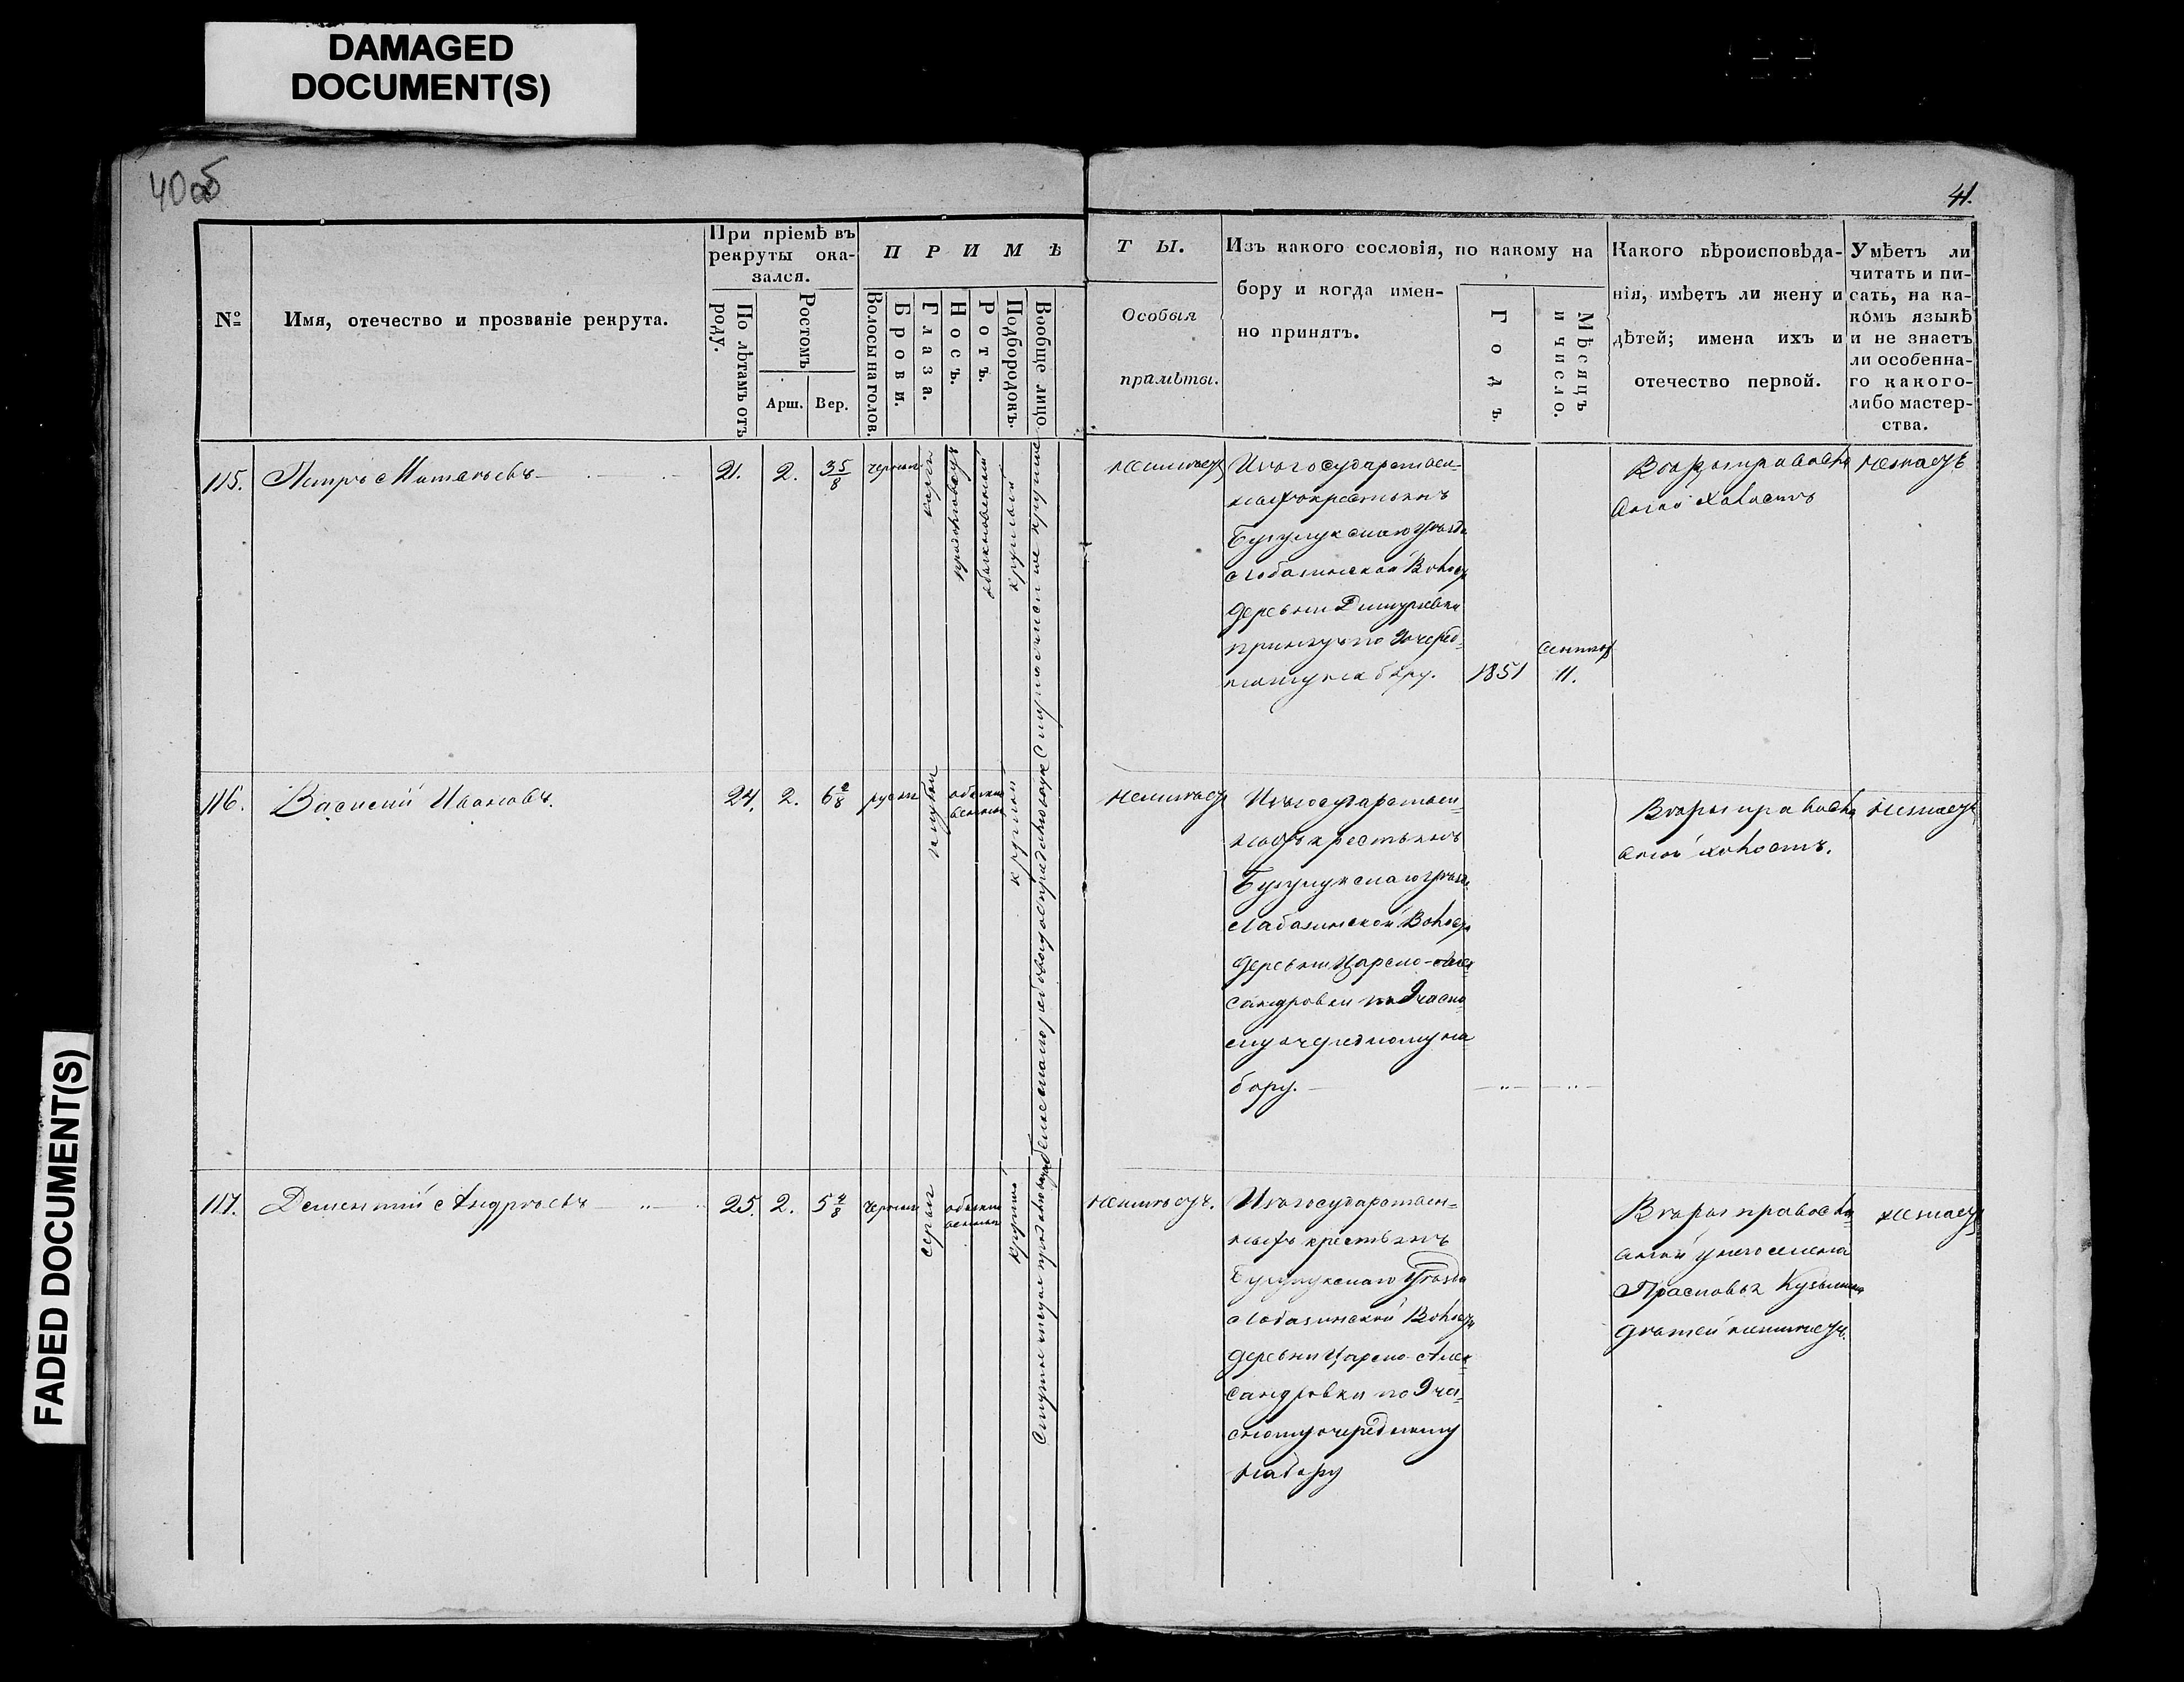 DAMAGED
DOCUMENT(S)
FADED DOCUMENT(S)
40об
41.
№
Имя, отечество и прозваніе рекрута.
При пріемѣ въ
рекруты ока-
зался.
По лѣтамъ отъ
роду.
Ростомъ
Арш. Вер.
П Р И М Ѣ
Волосы на голов.
Брови.
Глаза.
Носъ.
Ротъ.
Подбородокъ.
Вообще лицо
Т Ы.
Особыя
примѣты.
Изъ какого сословія, по какому на
бору и когда имен-
но принятъ.
Годъ.
Мѣсяцъ
и число.
Какого вѣроисповѣда-
нія, имѣетъ ли жену и
дѣтей; имена ихъ и
отечество первой.
Умѣетъ ли
читать и пи-
сать, на ка-
комъ языкѣ
и не знаетъ
ли особенна-
го какого-
либо мастер-
ства.
115.
Петръ Матвѣевъ
21. 2. 3 5/8
черныя
каріи
продолговатъ
обыкновенный
круглый
неимѣетъ
Изъ государствен-
ныхъ крестьянъ
Бузулукскаго уѣзда
Лобазинской Волос
деревни
принятъ по очеред-
ному набору.
1851
сентяб
11.
Вѣры правосла
вной холостъ
незнаетъ
116.
Василій Ивановъ.
24. 2. 6 2/8
русыя
голубыи
обыкно
венный
круглый
неимѣетъ
Изъ государствен-
ныхъ крестьянъ
Бузулукскаго уѣзда
Лабазинской Волос
деревни Царско-Алек
сандровки по 9 частно
му очередному на
бору.
Вѣры правосла
вной холостъ.
незнаетъ
117.
Дементій Андреевъ
25. 2. 5 4/8
черныя
серыи
обыкно
венный
круглый
неимѣетъ.
Изъ государствен-
ныхъ крестьянъ
Бузулукскаго Уѣзда
Лобазинской Волос
деревни Царско-Алек
сандровки по 9 час-
тному очередному
набору
Вѣры правосла
вной у него жена
Прасковья Кузьмина
дѣтей неимѣетъ.
незнаетъ